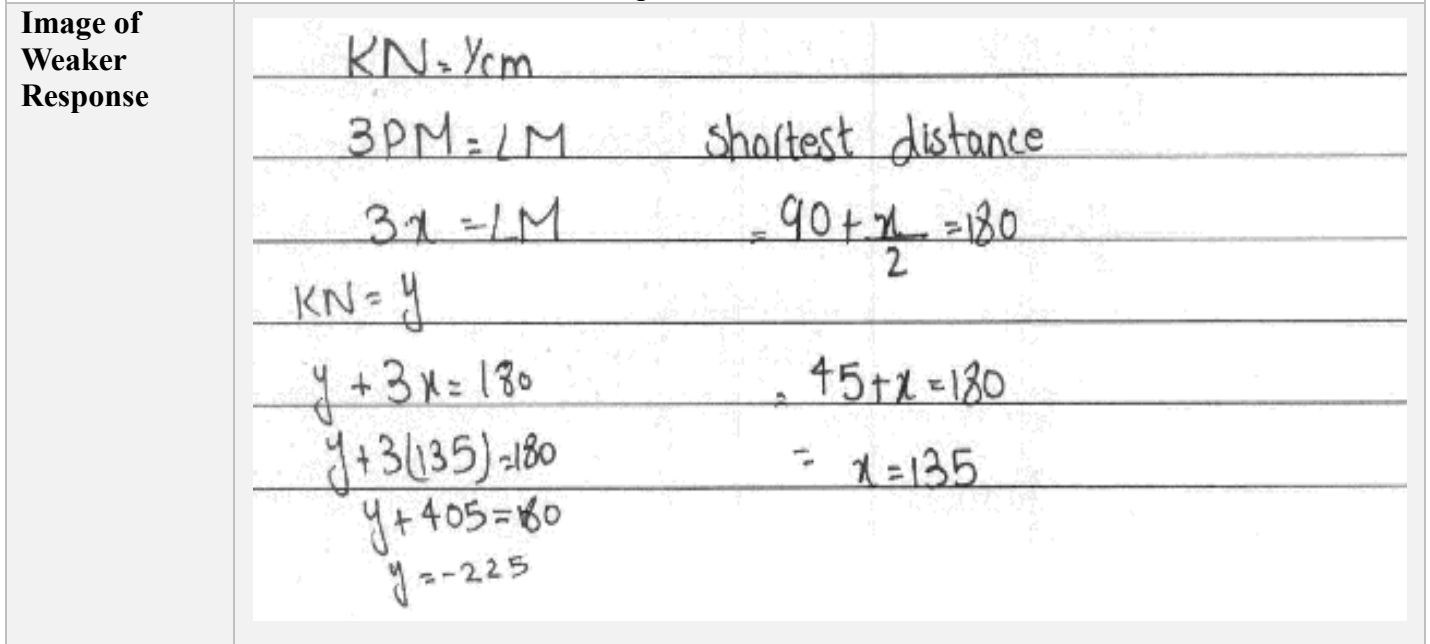 Image of
Weaker
Response
KN = Ycm
3PM = LM shortest distance
3x = LM = 90 + x/2 = 180
KN = y
y + 3x = 180 = 45 + x = 180
y + 3(135) = 180 = x = 135
y + 405 = 180
y = -225